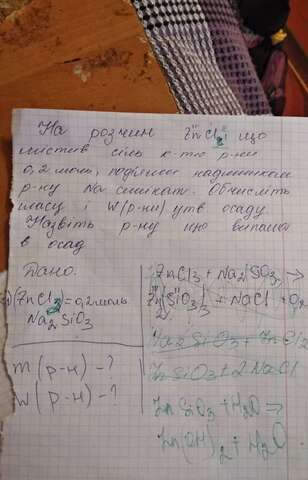 На розчин ZnCl2 що
містив сіль к-тю р-ни
0,2 моль, подіяли надлишком
р-ну Na силікату. Обчисліть
масу і W(р-ни) утв осаду.
Назвіть р-ну що випала
в осад
Дано:
(ZnCl2)=0,2моль
Na2SiO3
m(р-н)-?
W(р-н)-?
ZnCl2 + Na2SiO3 →
Zn(SiO3) + NaCl
Na2SiO3 + ZnCl2
ZnSiO3 + 2NaCl
ZnSiO3 + H2O ⇒
Zn(OH)2 + H2O